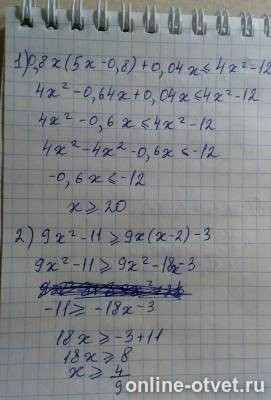 1) 0,8x(5x-0,8)+0,04x≤4x²-12
4x²-0,64x+0,04x≤4x²-12
4x²-0,6x≤4x²-12
4x²-4x²-0,6x≤-12
-0,6x≤-12
x≥20
2) 9x²-11≥9x(x-2)-3
9x²-11≥9x²-18x-3
-11≥-18x-3
18x≥-3+11
18x≥8
x≥4/9
online-otvet.ru